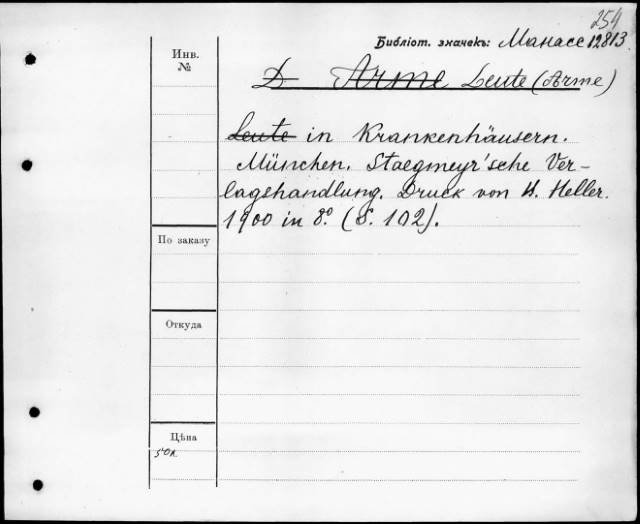 254
Библіот. значекъ: Манасс 12813
Инв.
№
D Arme Leute (Arme)
Leute in Krankenhäusern.
München. Staegmeyr'sche Ver-
lagshandlung. Druck von H. Heller.
1900 in 8º. (S. 102).
По заказу
Откуда
Цѣна
50 к.